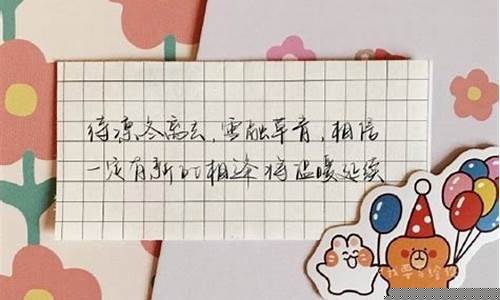 待凉冬离去，雪融草青，相信
一定有新的相逢将温暖延续